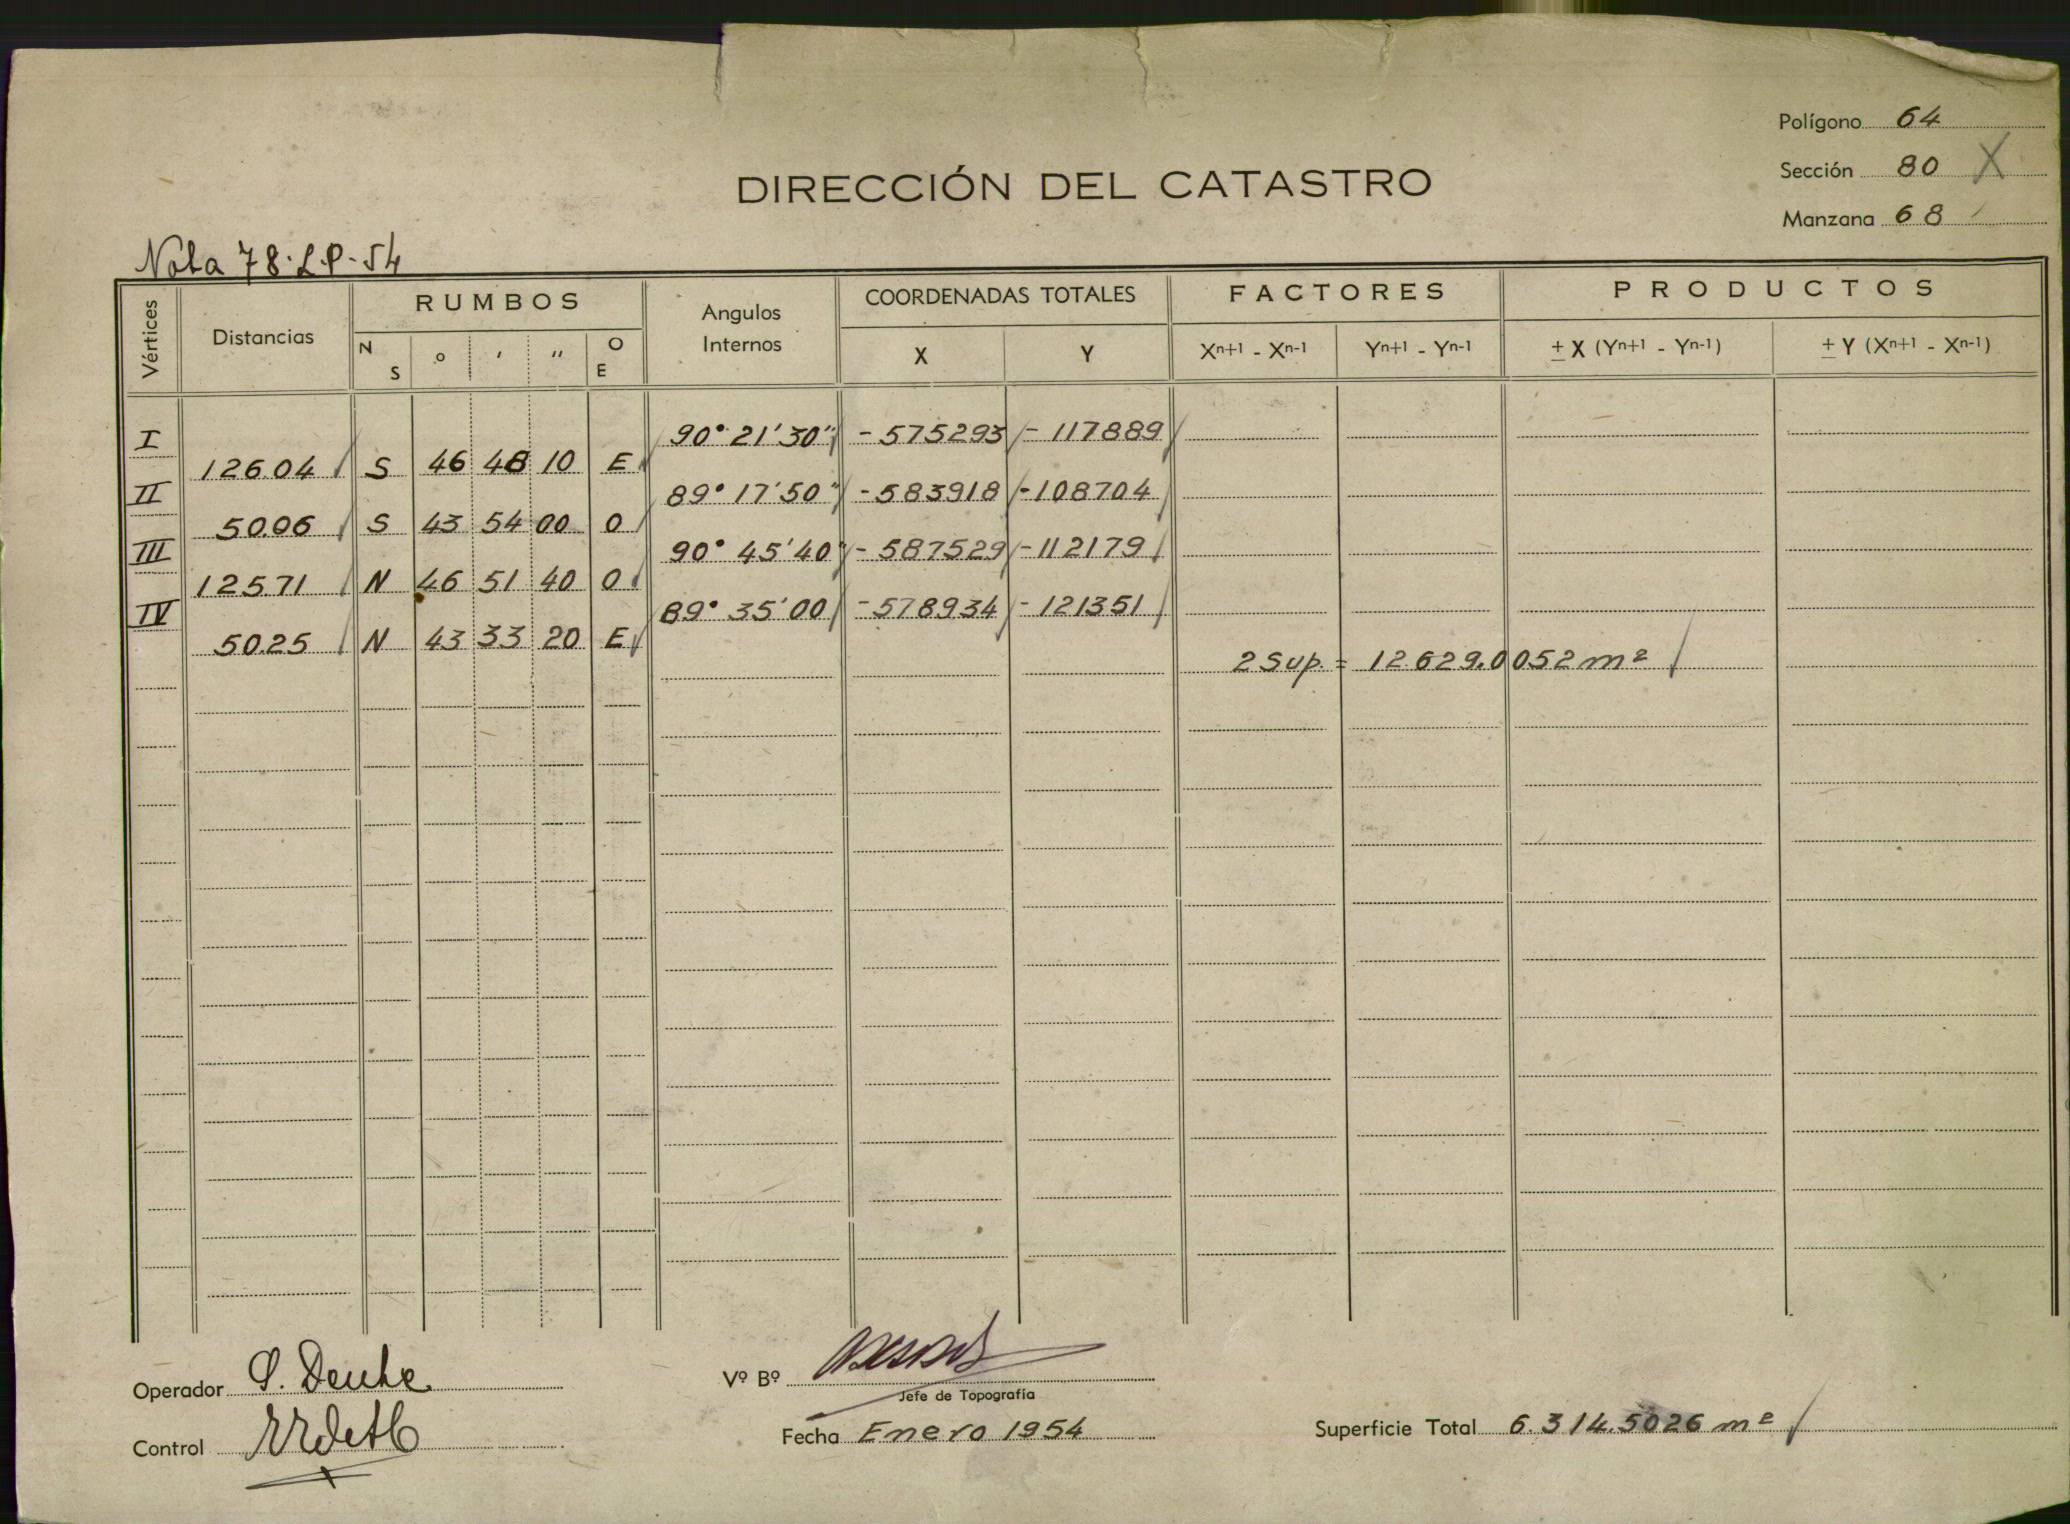 Polígono 64
Sección 80 X
Manzana 68
DIRECCIÓN DEL CATASTRO
Nota 78·L.P-54
Vértices Distancias RUMBOS Angulos Internos COORDENADAS TOTALES FACTORES PRODUCTOS
N S ° ' " O E X Y Xⁿ⁺¹ - Xⁿ⁻¹ Yⁿ⁺¹ - Yⁿ⁻¹ ± X (Yⁿ⁺¹ - Yⁿ⁻¹) ± Y (Xⁿ⁺¹ - Xⁿ⁻¹)
I 90° 21' 30" - 575293 - 117889
126.04 S 46 48 10 E
II 89° 17' 50" - 583918 - 108704
50.06 S 43 54 00 O
III 90° 45' 40" - 587529 - 112179
125.71 N 46 51 40 O
IV 89° 35' 00 - 578934 - 121351
50.25 N 43 33 20 E
2 Sup. = 12.629.0052 m²
Operador
Vº Bº
Jefe de Topografía
Control
Fecha Enero 1954
Superficie Total 6.314.5026 m²